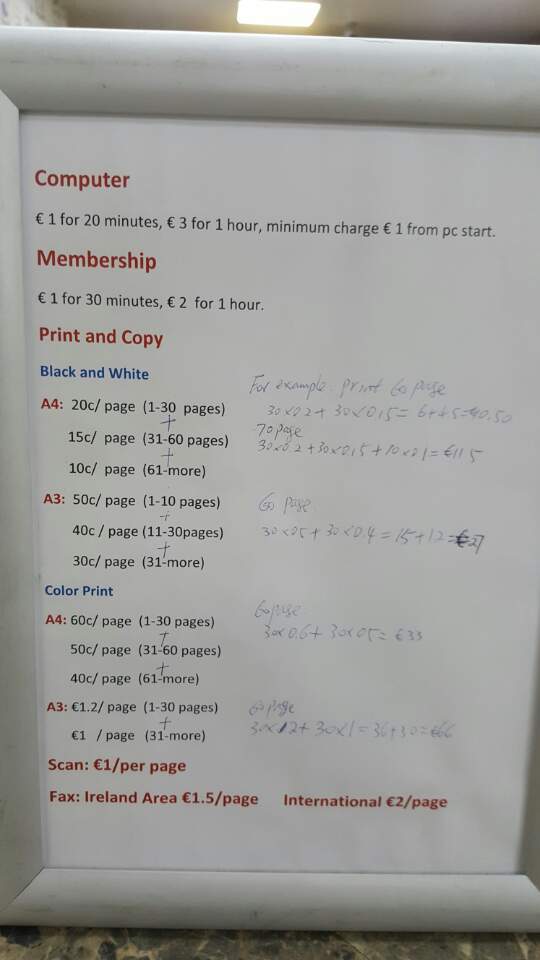 Computer
€ 1 for 20 minutes, € 3 for 1 hour, minimum charge € 1 from pc start.
Membership
€ 1 for 30 minutes, € 2 for 1 hour.
Print and Copy
Black and White
For example. print 60 page
A4: 20c/ page (1-30 pages)
30×0.2 + 30×0.15 = 6+4.5=€10.50
+
70 page
15c/ page (31-60 pages)
30×0.2+30×0.15+10×0.1=€11.5
+
10c/ page (61-more)
A3: 50c/ page (1-10 pages)
60 page
+
40c / page (11-30pages)
30×0.5+30×0.4=15+12=€27
+
30c/ page (31-more)
Color Print
A4: 60c/ page (1-30 pages)
60page
+
30×0.6+30×0.5=€33
50c/ page (31-60 pages)
+
40c/ page (61-more)
A3: €1.2/ page (1-30 pages)
60 page
+
30×1.2+30×1=36+30=€66
€1 / page (31-more)
Scan: €1/per page
Fax: Ireland Area €1.5/page International €2/page